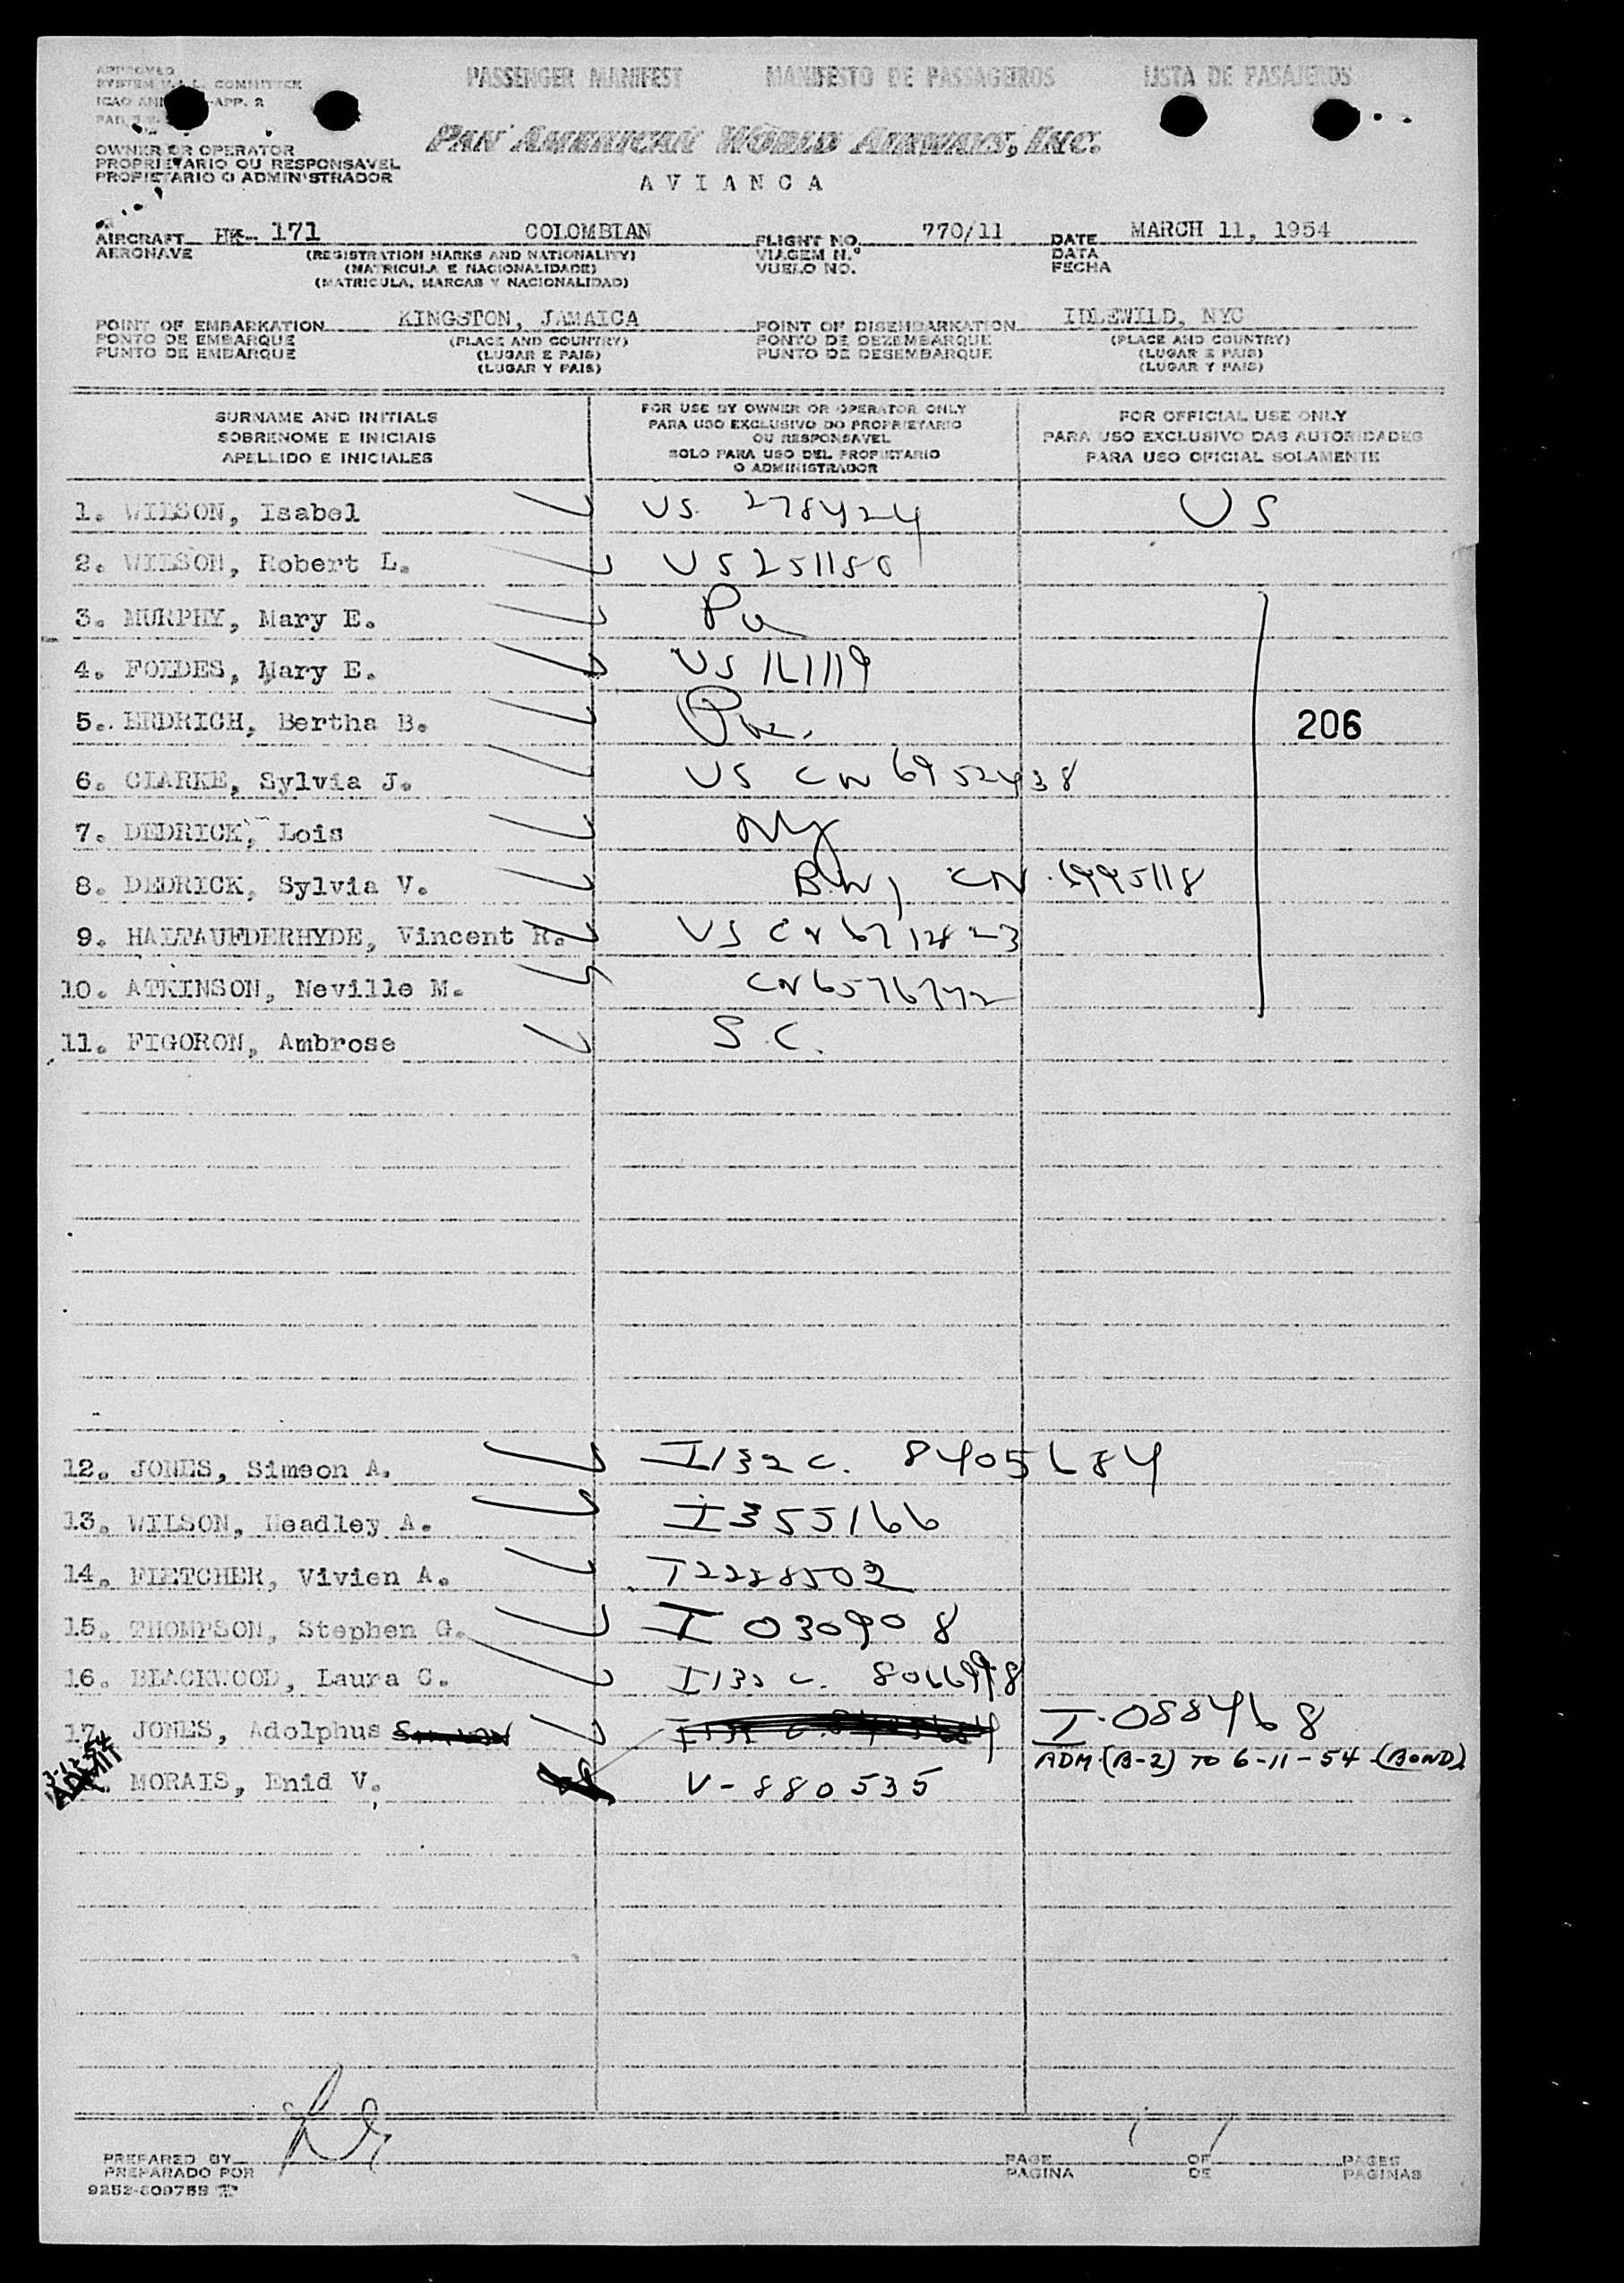 APPROVED
SYSTEM COMMITTEE
ICAO APP. 2
PASSENGER MANIFEST MANIFESTO DE PASSAGEIROS LISTA DE PASAJEROS
OWNER OR OPERATOR
PROPRIETARIO OU RESPONSAVEL
PROPIETARIO O ADMINISTRADOR
PAN AMERICAN WORLD AIRWAYS, INC.
AVIANCA
AIRCRAFT HK- 171 COLOMBIAN FLIGHT NO. 770/11 DATE MARCH 11, 1954
AERONAVE (REGISTRATION MARKS AND NATIONALITY) VIAGEM N.º DATA
(MATRICULA E NACIONALIDADE) VUELO NO. FECHA
(MATRICULA, MARCAS Y NACIONALIDAD)
POINT OF EMBARKATION KINGSTON, JAMAICA POINT OF DISEMBARKATION IDLEWILD, NYC
PONTO DE EMBARQUE (PLACE AND COUNTRY) PONTO DE DEZEMBARQUE (PLACE AND COUNTRY)
PUNTO DE EMBARQUE (LUGAR E PAIS) PUNTO DE DESEMBARQUE (LUGAR E PAIS)
(LUGAR Y PAIS) (LUGAR Y PAIS)
SURNAME AND INITIALS
SOBRENOME E INICIAIS
APELLIDO E INICIALES
FOR USE BY OWNER OR OPERATOR ONLY
PARA USO EXCLUSIVO DO PROPRIETARIO
OU RESPONSAVEL
SOLO PARA USO DEL PROPIETARIO
O ADMINISTRADOR
FOR OFFICIAL USE ONLY
PARA USO EXCLUSIVO DAS AUTORIDADES
PARA USO OFICIAL SOLAMENTE
1. WILSON, Isabel US. 278424 US
2. WILSON, Robert L. US 251150
3. MURPHY, Mary E. Pa
4. FOLDES, Mary E. US 161119
5. ERDRICH, Bertha B. 206
6. CLARKE, Sylvia J. US CN 6952438
7. DEDRICK, Lois NY
8. DEDRICK, Sylvia V. CN 6995118
9. HALTAUFDERHYDE, Vincent R. US CN 6712823
10. ATKINSON, Neville M. CN 6576772
11. FIGORON, Ambrose S.C.
12. JONES, Simeon A. I132 C. 8405684
13. WILSON, Headley A. I355166
14. FLETCHER, Vivien A. I2288502
15. THOMPSON, Stephen G. I 030908
16. BLACKWOOD, Laura C. I132 C. 8066998
17. JONES, Adolphus I-0884968
ADM (B-2) TO 6-11-54 (BOND)
3-12-54
ADMIT
MORAIS, Enid V. V-880535
PREPARED BY PAGE 1 OF 1 PAGES
PREPARADO POR PAGINA DE PAGINAS